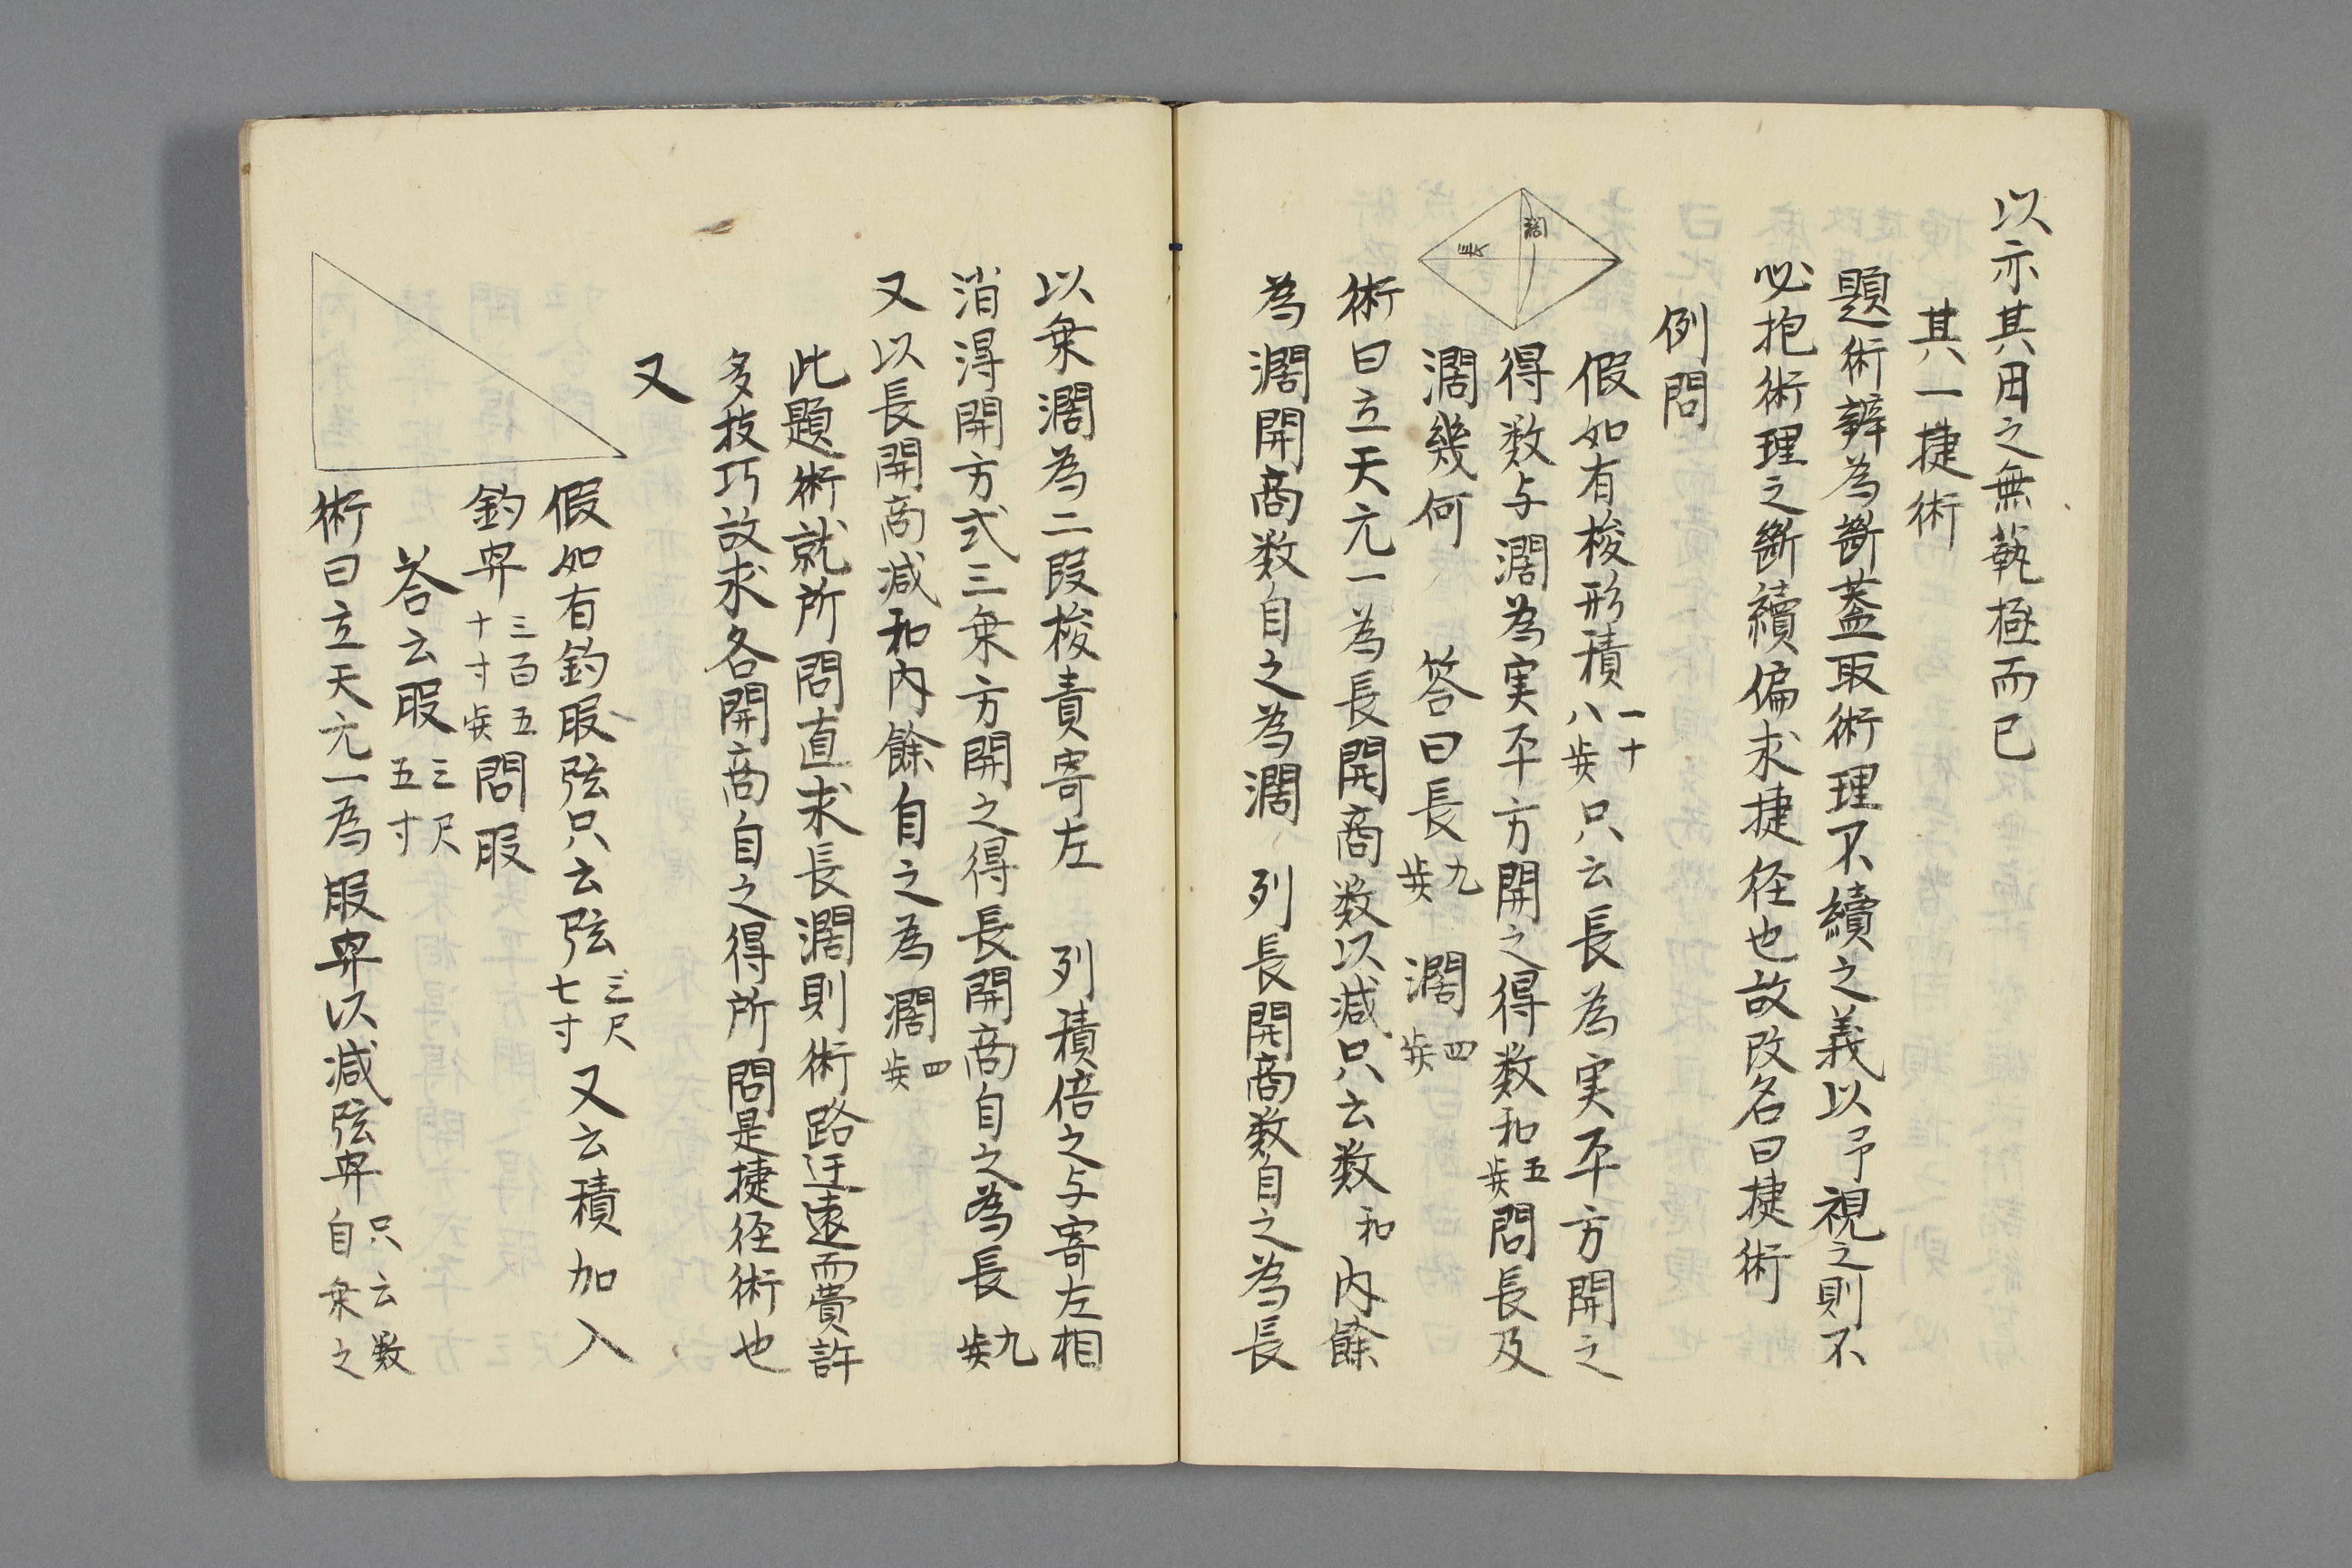 以示其用之無執極而已
其一捷術
題術辭為斷蓋取術理不續之義以予視之則不
必抱術理之斷續偏求捷径也故改名曰捷術
例問
假如有梭形積一十八歩只云長為実平方開之
得数与濶為実平方開之得数和五歩問長及
濶幾何 答曰長九歩 濶四歩
長
濶
術曰立天元一為長開商数以减只云数和内餘
為濶開商数自之為濶 列長開商数自之為長
以乗濶為二段梭責寄左 列積倍之与寄左相
消得開方式三乗方開之得長開商自之為長九歩
又以長開商减和内餘自之為濶四歩
此題術就所問直求長濶則術路迂遠而費許
多技巧故求各開商自之得所問是捷径術也
又
假如有釣股弦只云弦三尺七寸又云積加入
釣巾三百五十寸歩問股
荅云股三尺五寸
術曰立天元一為股巾以减弦巾只云数自乗之